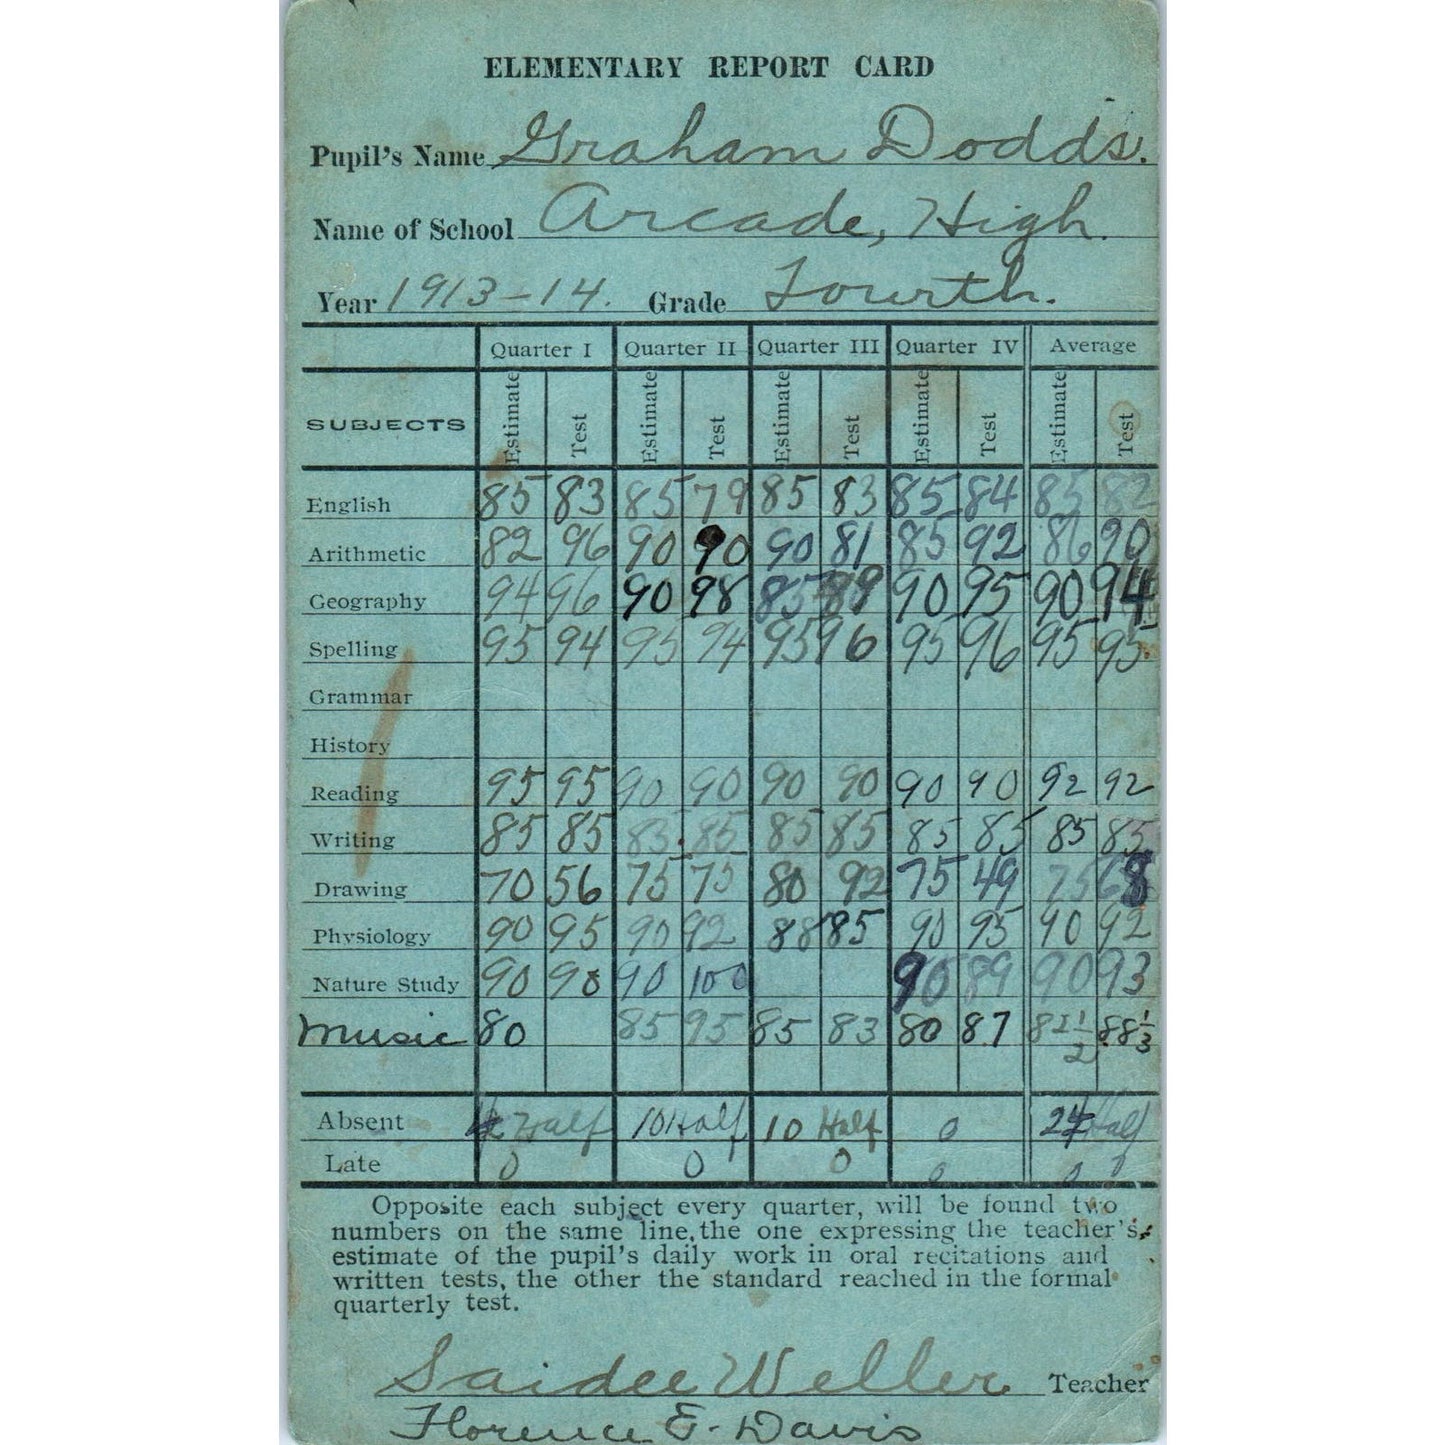 ELEMENTARY REPORT CARD
Pupil's Name Graham Dodds.
Name of School Arcade, High.
Year 1913-14. Grade Fourth.
Quarter I Quarter II Quarter III Quarter IV Average
SUBJECTS Estimate Test Estimate Test Estimate Test Estimate Test Estimate Test
English 85 83 85 79 85 83 85 84 85 82
Arithmetic 82 96 90 90 90 81 85 92 86 90
Geography 94 96 90 98 85 90 95 90 94
Spelling 95 94 95 94 95 96 95 96 95 95
Grammar
History
Reading 95 95 90 90 90 90 90 90 92 92
Writing 85 85 85 85 85 85 85 85 85 85
Drawing 70 56 75 75 80 92 75 49 75 68
Physiology 90 95 90 92 88 85 90 95 90 92
Nature Study 90 90 90 100 90 89 90 93
Music 80 85 95 85 83 80 87 82 1/2 88 1/3
Absent 4 Half 10 Half 10 Half 0 24 Half
Late 0 0 0 0 0 0
Opposite each subject every quarter, will be found two
numbers on the same line, the one expressing the teacher's
estimate of the pupil's daily work in oral recitations and
written tests, the other the standard reached in the formal
quarterly test.
Saidee Weller Teacher
Florence E. Davis